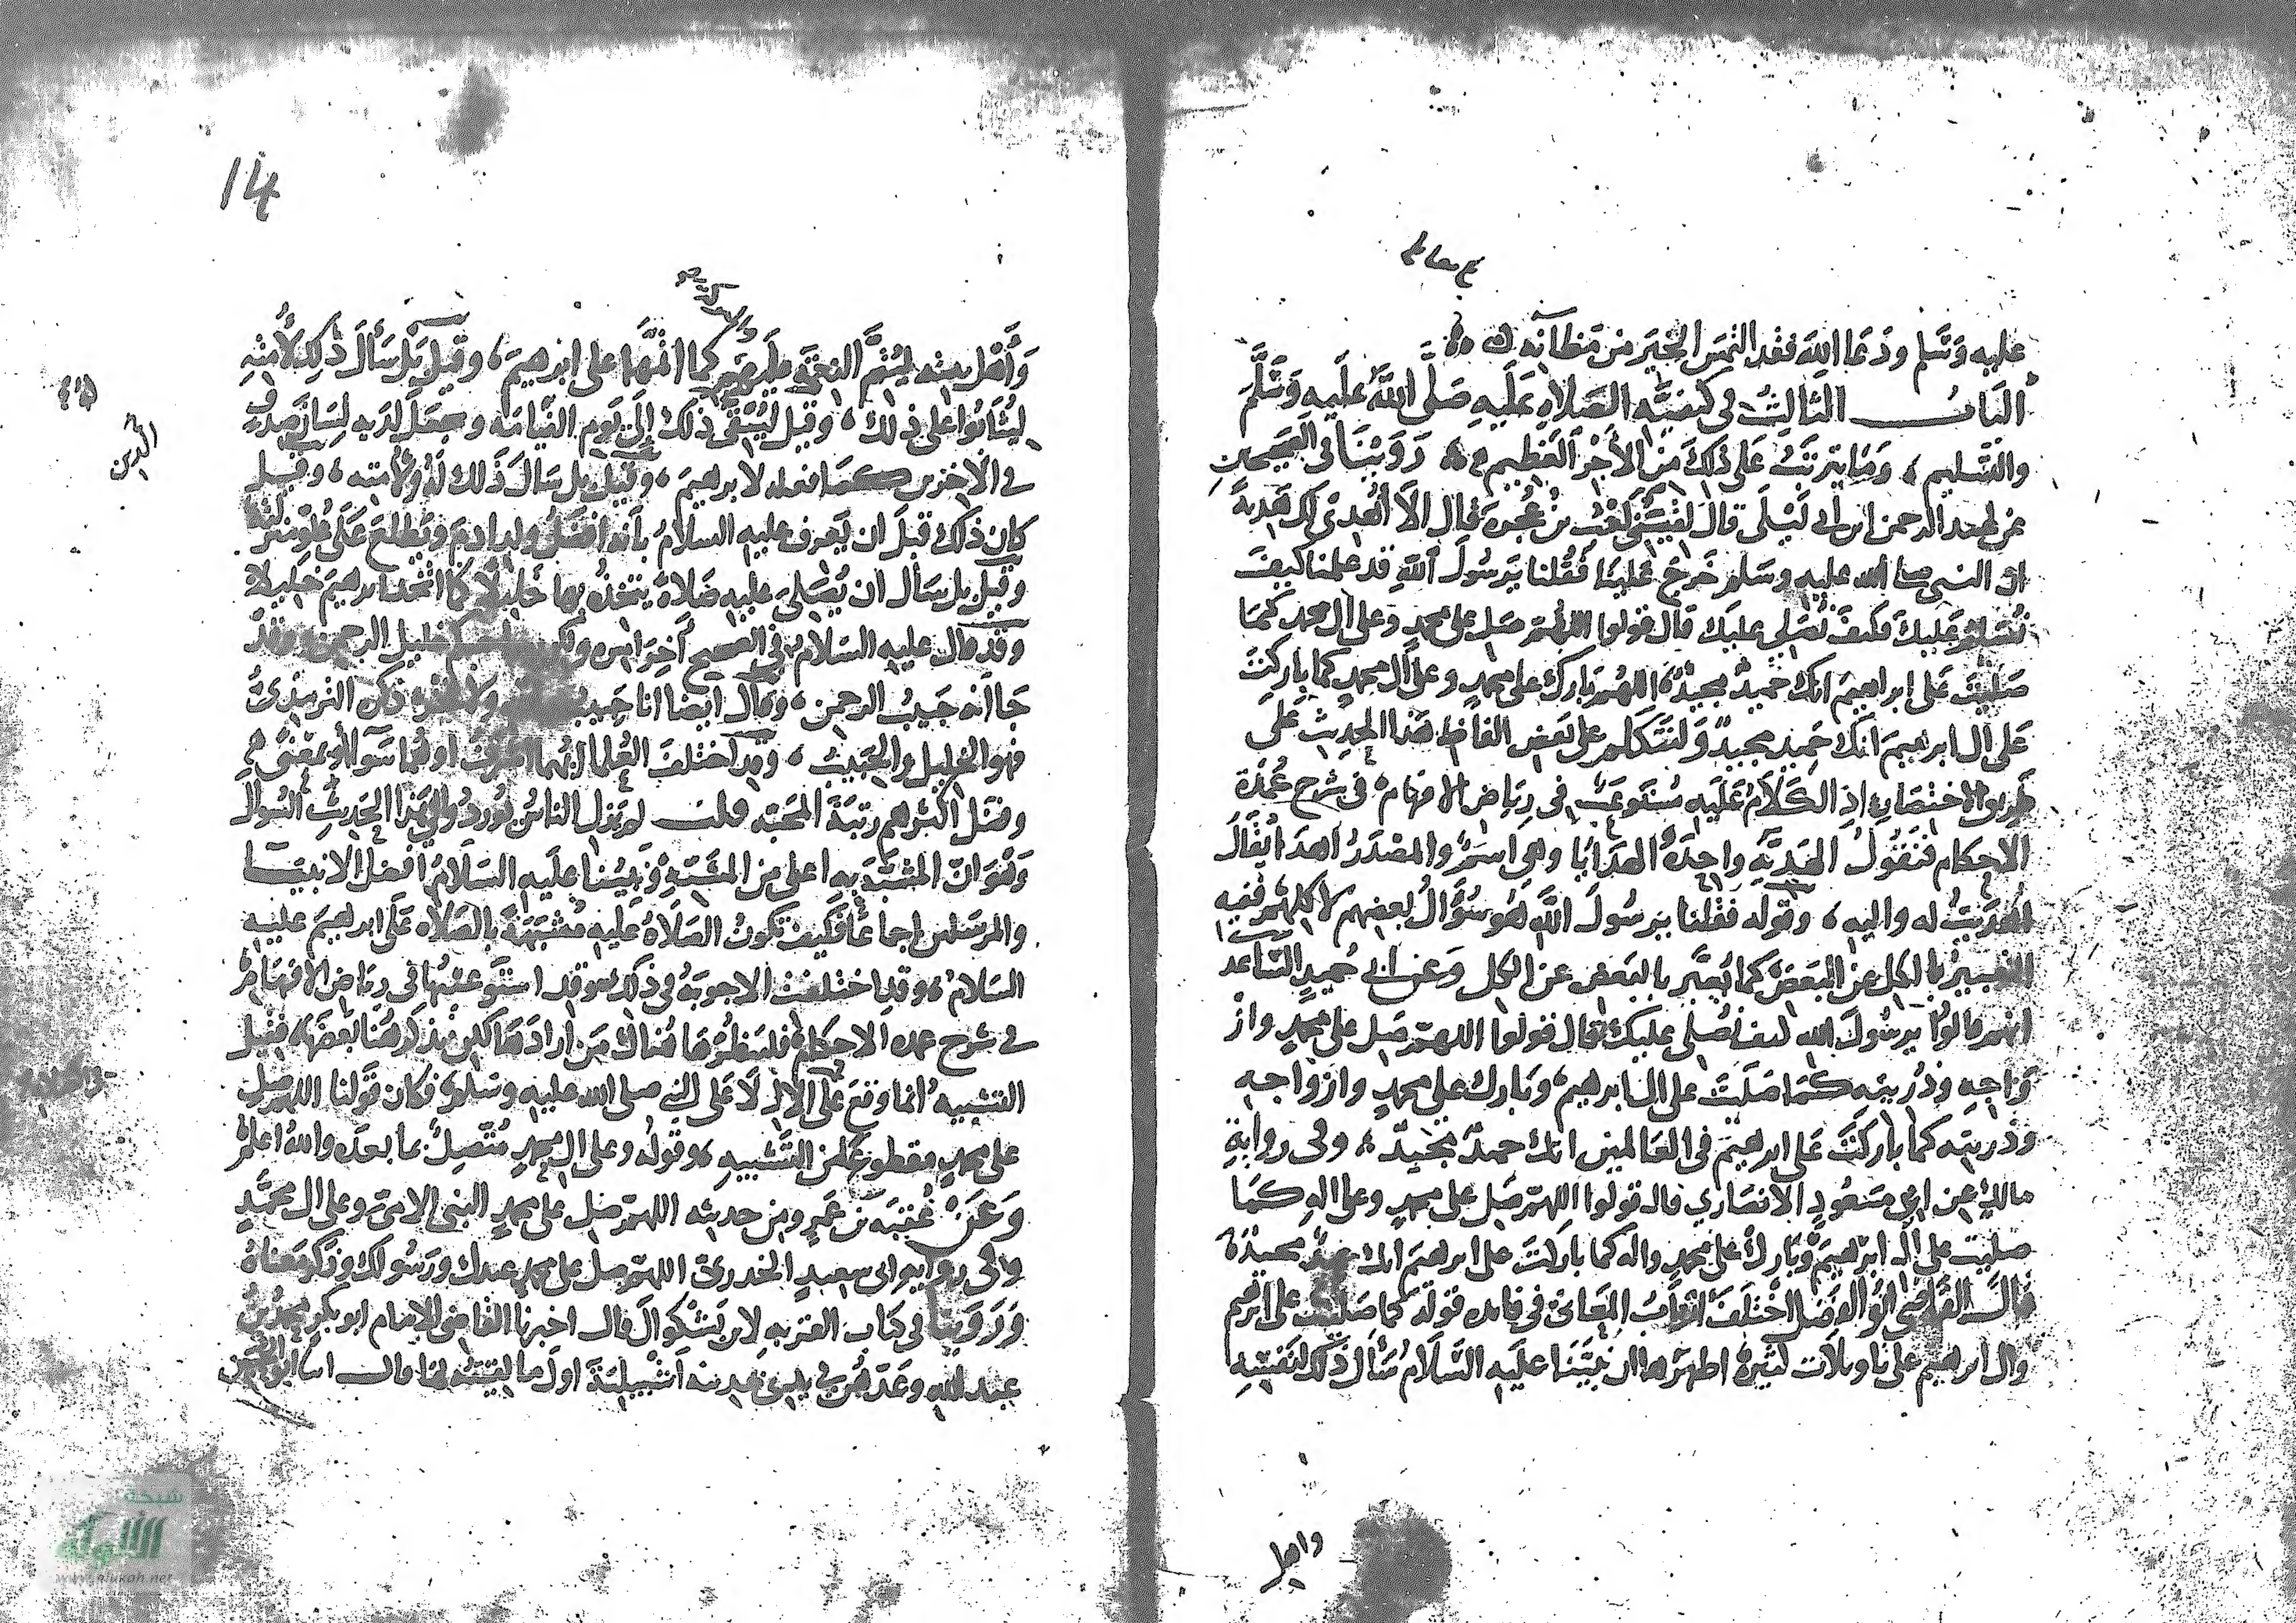 عليه وَسَّلم ودَعَا اللهَ فقد التمسَ الخيَر من مَظانِه
البَابُ الثالثُ في كيفيَّه الصَلاه عَلَيهِ صَلَّى اللهُ عَلَيهِ وَسَلَّمَ
والتسليم، وَمَا يترتبُ عَلى ذلكَ منَ الأَجْرِ العَظِيم، رَوَيْنَا في الصَحيحين
عن عبد الرحمن ابن ابي لَيْلَى قالَ لقيَني كعْب بنُ عُجرهَ فقال الاَ أُهْدى لك هَدِيةً
ان النبي صلى الله عليه وسَلم خَرجَ عَلَينا فَقُلنا يَرَسُولَ اللهِ قد علمنا كيفَ
نُسَلمُ عَليكَ فكيفَ نُصَلي عليكَ قال قولوا اللهُمَّ صَل على محمدٍ وعلى ال محمد كمَا
صَليْتَ عَلى إبراهيمَ انك حَميدٌ مجيدٌ اللهُمّ بَارك على محمدٍ وعلى ال محمدٍ كما باركتَ
عَلى ال ابرهيمَ انكَ حَميد مجيدٌ وَلنتَكلم على بَعض الفاظِ هَذا الحديث عَلَى
طَريق الاختصَارِ اذِ الكَلَامُ عَلَيهِ مُستَوعَبٌ في رِيَاض الافهَام في شرح عُمْدَة
الاحكام فَنَقُولُ الهَدِيّةِ واحِدَةُ الهدَايَا وهي اسَمٌ والمصْدَرُ اهدَا يُقَالُ
اهْدَيتُ له واليه، وقوله فقُلنا يَرسُولَ اللهِ هُوَ سُؤالُ بَعضِهم لا كلهُم ففيه
التعبيرُ بالكل عن البَعضِ كما يُعَبَّر بالبَعض عن الكل وَعَن ابي حُميدٍ السَّاعد
انهم قالوُا يرسُولَ الله كيف نُصَلى عليكَ قال قولوا اللهمَّ صَل على محمدٍ وازْ
وَاجِهِ وذُريتهِ كمَا صَلَيتَ على ال ابرهيمَ وَبَارك على محمدٍ وازوَاجهِ
وذريتِه كما بارَكتَ عَلى ابرهيمَ في العَالمين انك حميدٌ مجَيدٌ، وفي روايةِ
مالكٍ عن ابي مَسعُودٍ الانصَاري قال قولوا اللهمّ صَلِ على محمدٍ وعلى الهِ كمَا
صليت على ال ابرَهيمَ وَبَارك على محمدٍ واله كما بارَكتَ على ابرهيمَ انك حميدٌ مجيدٌ
قالَ القاضي ابُو الفَضل اختلفَ اربَابُ المعَاني في فايده قوله كما صَليت على ابرهيم
وال ابرهيم على تاويلات كثيرة اظهرُها ان نبيَّنَا عَليه السَّلَامُ سَأَلَ ذلكَ لنَفسِهِ
واهل
14
وَأَهْل بيته ليُتِمَّ النعمَة عليهم كما اتمَّهَا على ابرهيمَ، وقيل بَلْ سَأَلَ ذَلكَ لأُمتِهِ
ليُثَابُوا على ذلك، وقيل ليُبْقَى ذلكَ إِلَى يَوم القيامَه ويجعَلَ لهُ به لِسَانَ صدقٍ
في الآخرين كمَا فعله لابرهيمَ، وقيل بل سَألَ ذَلك لهُ ولأُمته، وقيل
كان ذلك قبلَ ان يَعرف عليه السلامُ بأنه افضَلُ ولد ادمَ ويَطلعَ عَلَى عُلوّ منزلته
وقيل بل سَأل ان يُصَلى عليه صَلاة يتخذهُ بها خَليلًا كما اتخذ ابرهيمَ خَليلًا
وقد قال عليه السَلامُ في الصحيح آخِرَ امره خليل الرحمن وقد
جَا أنه حَبيبُ الرحمن، وقال ايضا انا حَبيبُ ولا فخر ذكَره الترمذيُّ
فهو الخليل والحَبيب، وقد اختلفَ العُلما ايهُما اشرَفُ او هُما سَوَاء بمَعْنىً
وفضَّل اكثرهم رتبَةَ المحَبّه قلت لم يَزل الناسُ يُوردُونَ في هَذا الحديثِ السُوالَ
وَهُوَ انّ المُشبّه به اعلى من المُشبَّهِ وَنبيُّنا عليه السَلَامُ افضل الانبيَا
والمرسَلين اجماعًا فكيف تكونُ الصَلَاةُ عليه مُشبهةً بالصَلَاه عَلَى ابرهيمَ عليه
السَلامُ، وقد اختلفت الاجوبَةُ في ذلك وقد استَوعَبتُهَا في رِيَاض الافهَام
في شرح عمده الاحكام فليَنظُرهَا هُناكَ مَن ارادَهَا لكن نذكر هُنا بَعضَهَا، فقيل
التشبيه انما وقعَ على الآل لَا عَلى النبي صلى الله عليه وسَلم فكان قَولنا اللهم صل
على محمدٍ مقطوع عن التَشبيهِ، وقوله وعلى ال محمدٍ مُتّصِلٌ بما بعدَه واللهُ اعلمُ
وَعَنْ عُقبَه بن عَمرٍو من حديثه اللهمَّ صَل على محمدٍ النبي الاميّ وعلى ال محَمَّدٍ
وفي روايه ابي سعيدٍ الخدريّ اللهمّ صل على محمد عبدكَ ورَسُولكَ وذكر مَعناهُ
وَرَوَينا في كتاب القربهِ لابن بَشْكوال قال اخبرنا القاضي الإمام ابو بكرٍ محمد بنُ
عبد الله وعَدّهُن في يدي بمدينه اشبيليَةَ اول ما لقيتُه بها قال انا ابو الحُسَين
شبكة
الألوكة
www.alukah.net